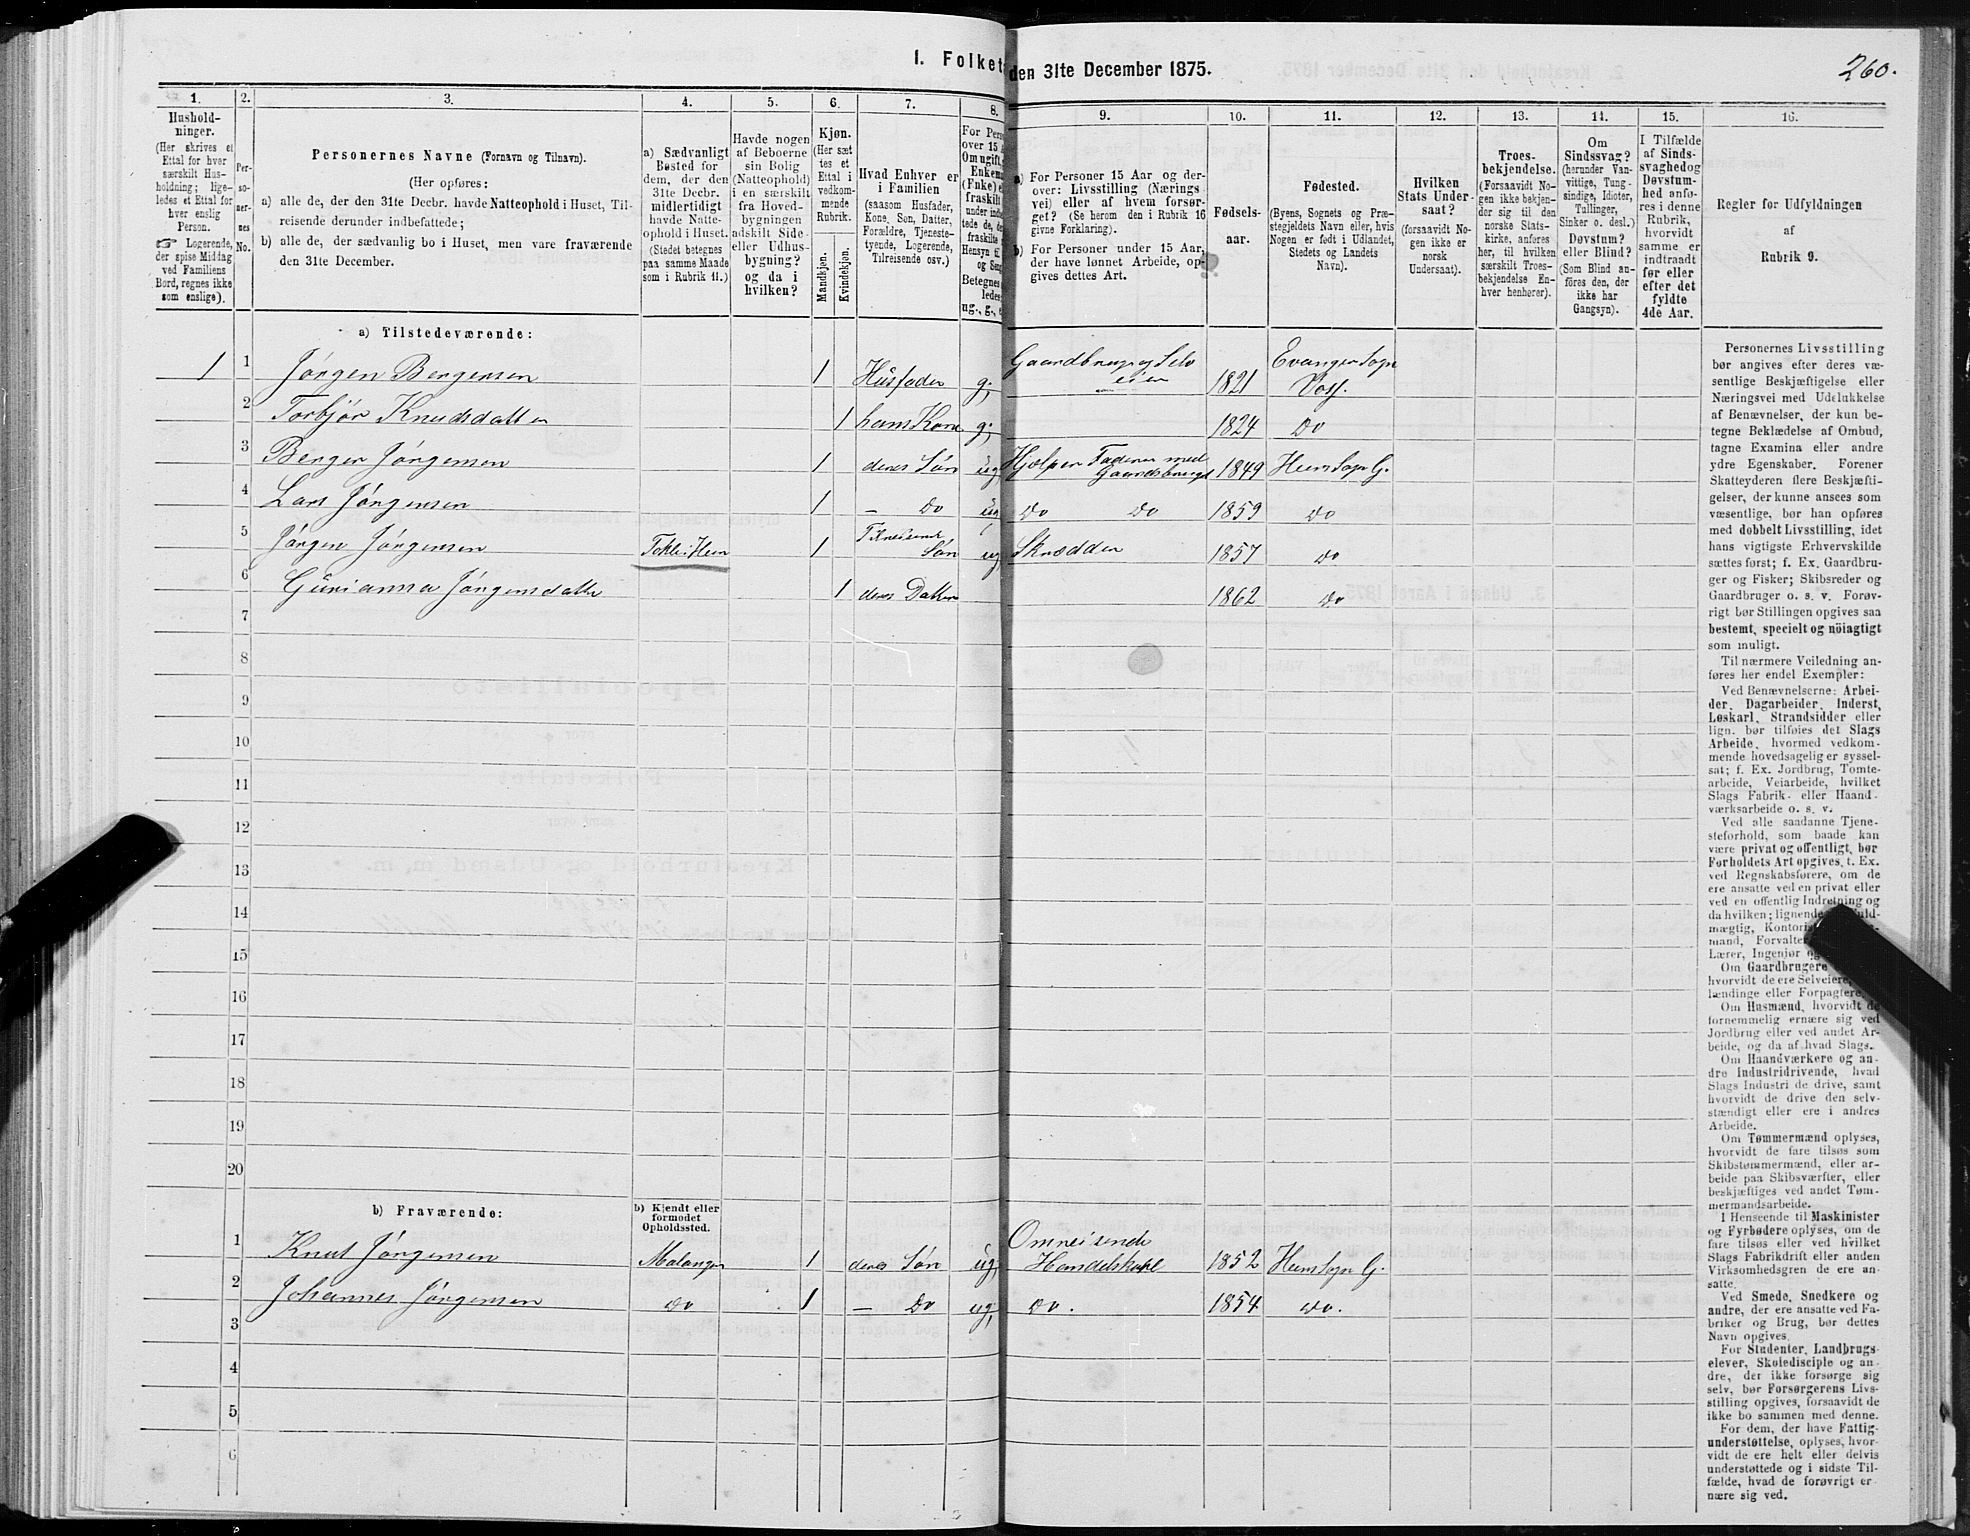 I. Folket
den 31te December 1875.
260.
1.
2.
3.
4.
5.
6.
7.
8.
9.
10.
11.
12.
13.
14.
15.
16.
Hushold-
ninger.
(Her skrives et
Ettal for hver
særskilt Hus-
holdning; lige-
ledes et Ettal for
hver enslig
Person.
☞ Logerende,
der spise Middag
ved Familiens
Bord, regnes ikke
som enslige).
Per-
so-
ner-
nes
No.
Personernes Navne (Fornavn og Tilnavn).
(Her opføres:
a) alle de, der den 31te Decbr. havde Natteophold i Huset, Til-
reisende derunder indbefattede;
b) alle de, der sædvanlig bo i Huset, men vare fraværende
den 31te December.
a) Sædvanligt
Bosted for
dem, der den
31te Decbr.
midlertidigt
havde Natte-
ophold i Huset.
(Stedet betegnes
paa samme Maade
som i Rubrik 11.)
Havde nogen
af Beboerne
sin Bolig
(Natteophold)
i en særskilt
fra Hoved-
bygningen
adskilt Side-
eller Udhus-
bygning?
og da i
hvilken?
Kjøn.
(Her sæt-
tes et
Ettal i
vedkom-
mende
Rubrik.
Mandkjøn.
Kvindekjøn.
Hvad Enhver er
i Familien
(saasom Husfader,
Kone, Søn, Datter,
Forældre, Tjeneste-
tyende, Logerende,
Tilreisende osv.)
For Pers
over 15 A
Om ugift,
Enkem
(Fnke) e
fraskilt
under indbe
tede de, de
fraskilte
Hensyn ti
og Sen
Betegnes
ledes
ug., g., e
a) For Personer 15 Aar og der-
over: Livsstilling (Nærings
vei) eller af hvem forsør-
get? (Se herom den i Rubrik 16
givne Forklaring).
b) For Personer under 15 Aar,
der have lønnet Arbeide, op-
gives dettes Art.
Fødsels-
aar.
Fødested.
(Byens, Sognets og Præ-
stegjeldets Navn eller, hvis
Nogen er født i Udlandet,
Stedets og Landets
Navn).
Hvilken
Stats Under-
saat?
(forsaavidt No-
gen ikke er
norsk
Undersaat).
Troes-
bekjendelse.
(Forsaavidt No-
gen ikke bekjen-
der sig til den
norske Stats-
kirke, anføres
her, til hvilken
særskilt Troes-
bekjendelse En-
hver henhører).
Om
Sindssvag?
(herunder Van-
vittige, Tung-
sindige, Idioter,
Tullinger,
Sinker o. desl.)
Døvstum?
eller Blind?
(Som Blind an-
føres den, der
ikke har
Gangsyn).
I Tilfælde
af Sinds-
svaghedog
Døvstum-
hed anfø-
res i denne
Rubrik,
hvorvidt
samme er
indtraadt
før eller
efter det
fyldte
4de Aar.
Regler for Udfyldningen
af
Rubrik 9.
a) Tilstedeværende:
1 1 Jörgen Bergersen 1 Husfader g; Gaardbruger og Selv
eier 1821 Evanger Sogn
Voss.
2 Torbjör Knudsdatter 1 hans Kone g; 1824 Do
3 Berger Jörgensen 1 deres Sön ug; Hjelper Faderen med
Gaardsbruget 1849 Hens Sogn G.
4 Lars Jörgensen 1 – Do ug; Do Do 1859 Do
5 Jörgen Jörgensen 1 Tilreisende
Sön ug; Skrædder 1857 Do
6 Gurianna Jörgensdatter 1 deres Datter 1862 Do
7
8
9
10
11
12
13
14
15
16
17
18
19
20
b) Fraværende:
b) Kjendt eller
formodet
Opholdssted.
1 Knut Jörgensen Malangen 1 deres Sön ug; Omreisende
Handelskarl 1852 Hens Sogn G.
2 Johannes Jörgensen Do 1 – Do ug; Do. 1854 Do.
3
4
5
6
Personernes Livsstilling
bør angives efter deres væ-
sentlige Beskjæftigelse eller
Næringsvei med Udelukkelse
af Benævnelser, der kun be-
tegne Beklædelse af Ombud,
tagne Examina eller andre
ydre Egenskaber. Forener
Skatteyderen flere Beskjæfti-
gelser, der kunne ansees som
væsentlige, bør han opføres
med dobbelt Livsstilling, idet
hans vigtigste Erhvervskilde
sættes først; f. Ex. Gaardbru-
ger og Fisker; Skibsreder og
Gaardbruger o. s. v. Forøv-
rigt bør Stillingen opgives saa
bestemt, specielt og nöiagtigt
som muligt.
Til nærmere Veiledning an-
føres her endel Exempler:
Ved Benævnelserne: Arbei-
der, Dagarbeider, Inderst,
Løskarl, Strandsidder eller
lign. bør tilføies det Slags
Arbeide, hvormed vedkom-
mende hovedsagelig er syssel-
sat; f. Ex. Jordbrug, Tomte-
arbeide, Veiarbeide, hvilket
Slags Fabrik- eller Haand-
værksarbeide o. s. v.
Ved alle saadanne Tjene-
steforhold, som baade kan
være privat og offentligt, bør
Forholdets Art opgives, t. Ex.
ved Regnskabsførere, om de
ere ansatte ved en privat eller
ved en offentlig Indretning og
da hvilken; lignende
mægtig,
mand,
Lærer, Ingeniør
Om Gaardbrugere
hvorvidt de ere Selveiere,
lændinge eller Forpagtere
Om Husmænd, hvorvidt de
fornemmelig ernære sig ved
Jordbrug eller ved andet Ar-
beide, og da af hvad Slags.
Om Haandværkere og an-
dre Industridrivende, hvad
Slags Industri de drive, samt
hvorvidt de drive den selv-
stændigt eller ere i andres
Arbeide.
Om Tømmermænd oplyses,
hvorvidt de fare tilsøs som
Skibstømmermænd, eller ar-
beide paa Skibsværfter, eller
beskjæftiges ved andet Tøm-
mermandsarbeide.
I Henseende til Maskinister
og Fyrbødere oplyses, om de
fare tilsøs eller ved hvilket
Slags Fabrikdrift eller anden
Virksomhedsgren de ere an-
satte.
Ved Smede, Snedkere og
andre, der ere ansatte ved Fa-
briker og Brug, bør dettes
Navn opgives.
For Studenter, Landbrugs-
elever, Skoledisciple og an-
dre, der ikke forsørge sig
selv, bør Forsørgerens Livs-
stilling opgives, forsaavidt de
ikke bo sammen med denne.
For dem, der have Fattig-
understøttelse, oplyses, hvor-
vidt de ere helt eller delvis
understøttede og i sidste Til-
fælde, hvad de forøvrigt er-
nære sig ved.